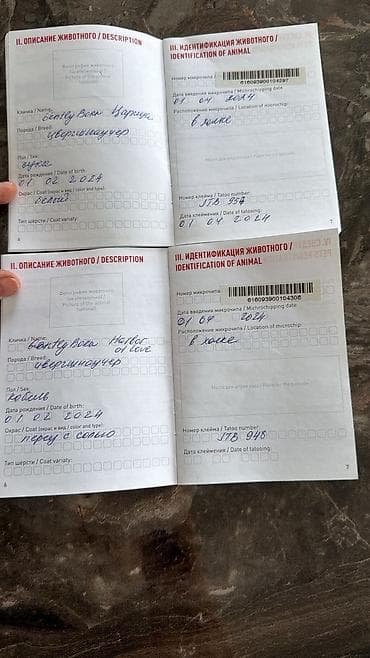 II. ОПИСАНИЕ ЖИВОТНОГО / DESCRIPTION
Фотография животного
(необязательно) /
Picture of the animal
(optional)
Кличка / Name:
Gently Born Царица
Порода / Breed:
цвергшнауцер
Пол / Sex:
сука
Дата рождения / Date of birth:
01 02 2024
Окрас / Coat (окрас и вид / color and type):
белый
Тип шерсти / Coat variety:
6
III. ИДЕНТИФИКАЦИЯ ЖИВОТНОГО /
IDENTIFICATION OF ANIMAL
Номер микрочипа /
616093900104297
Дата введения микрочипа / Microchipping date
01 04 2024
Расположение микрочипа / Location of microchip:
в холке
Номер клейма / Tatoo number:
JTB 957
Дата клеймения / Date of tatooing:
01 04 2024
7
II. ОПИСАНИЕ ЖИВОТНОГО / DESCRIPTION
Фотография животного
(необязательно) /
Picture of the animal
(optional)
Кличка / Name:
Gently Born Harbor
of love
Порода / Breed:
цвергшнауцер
Пол / Sex:
кобель
Дата рождения / Date of birth:
01 02 2024
Окрас / Coat (окрас и вид / color and type):
перец с солью
Тип шерсти / Coat variety:
6
III. ИДЕНТИФИКАЦИЯ ЖИВОТНОГО /
IDENTIFICATION OF ANIMAL
Номер микрочипа /
616093900104306
Дата введения микрочипа / Microchipping date:
01 04 2024
Расположение микрочипа / Location of microchip:
в холке
Номер клейма / Tatoo number:
JTB 948
Дата клеймения / Date of tatooing:
7